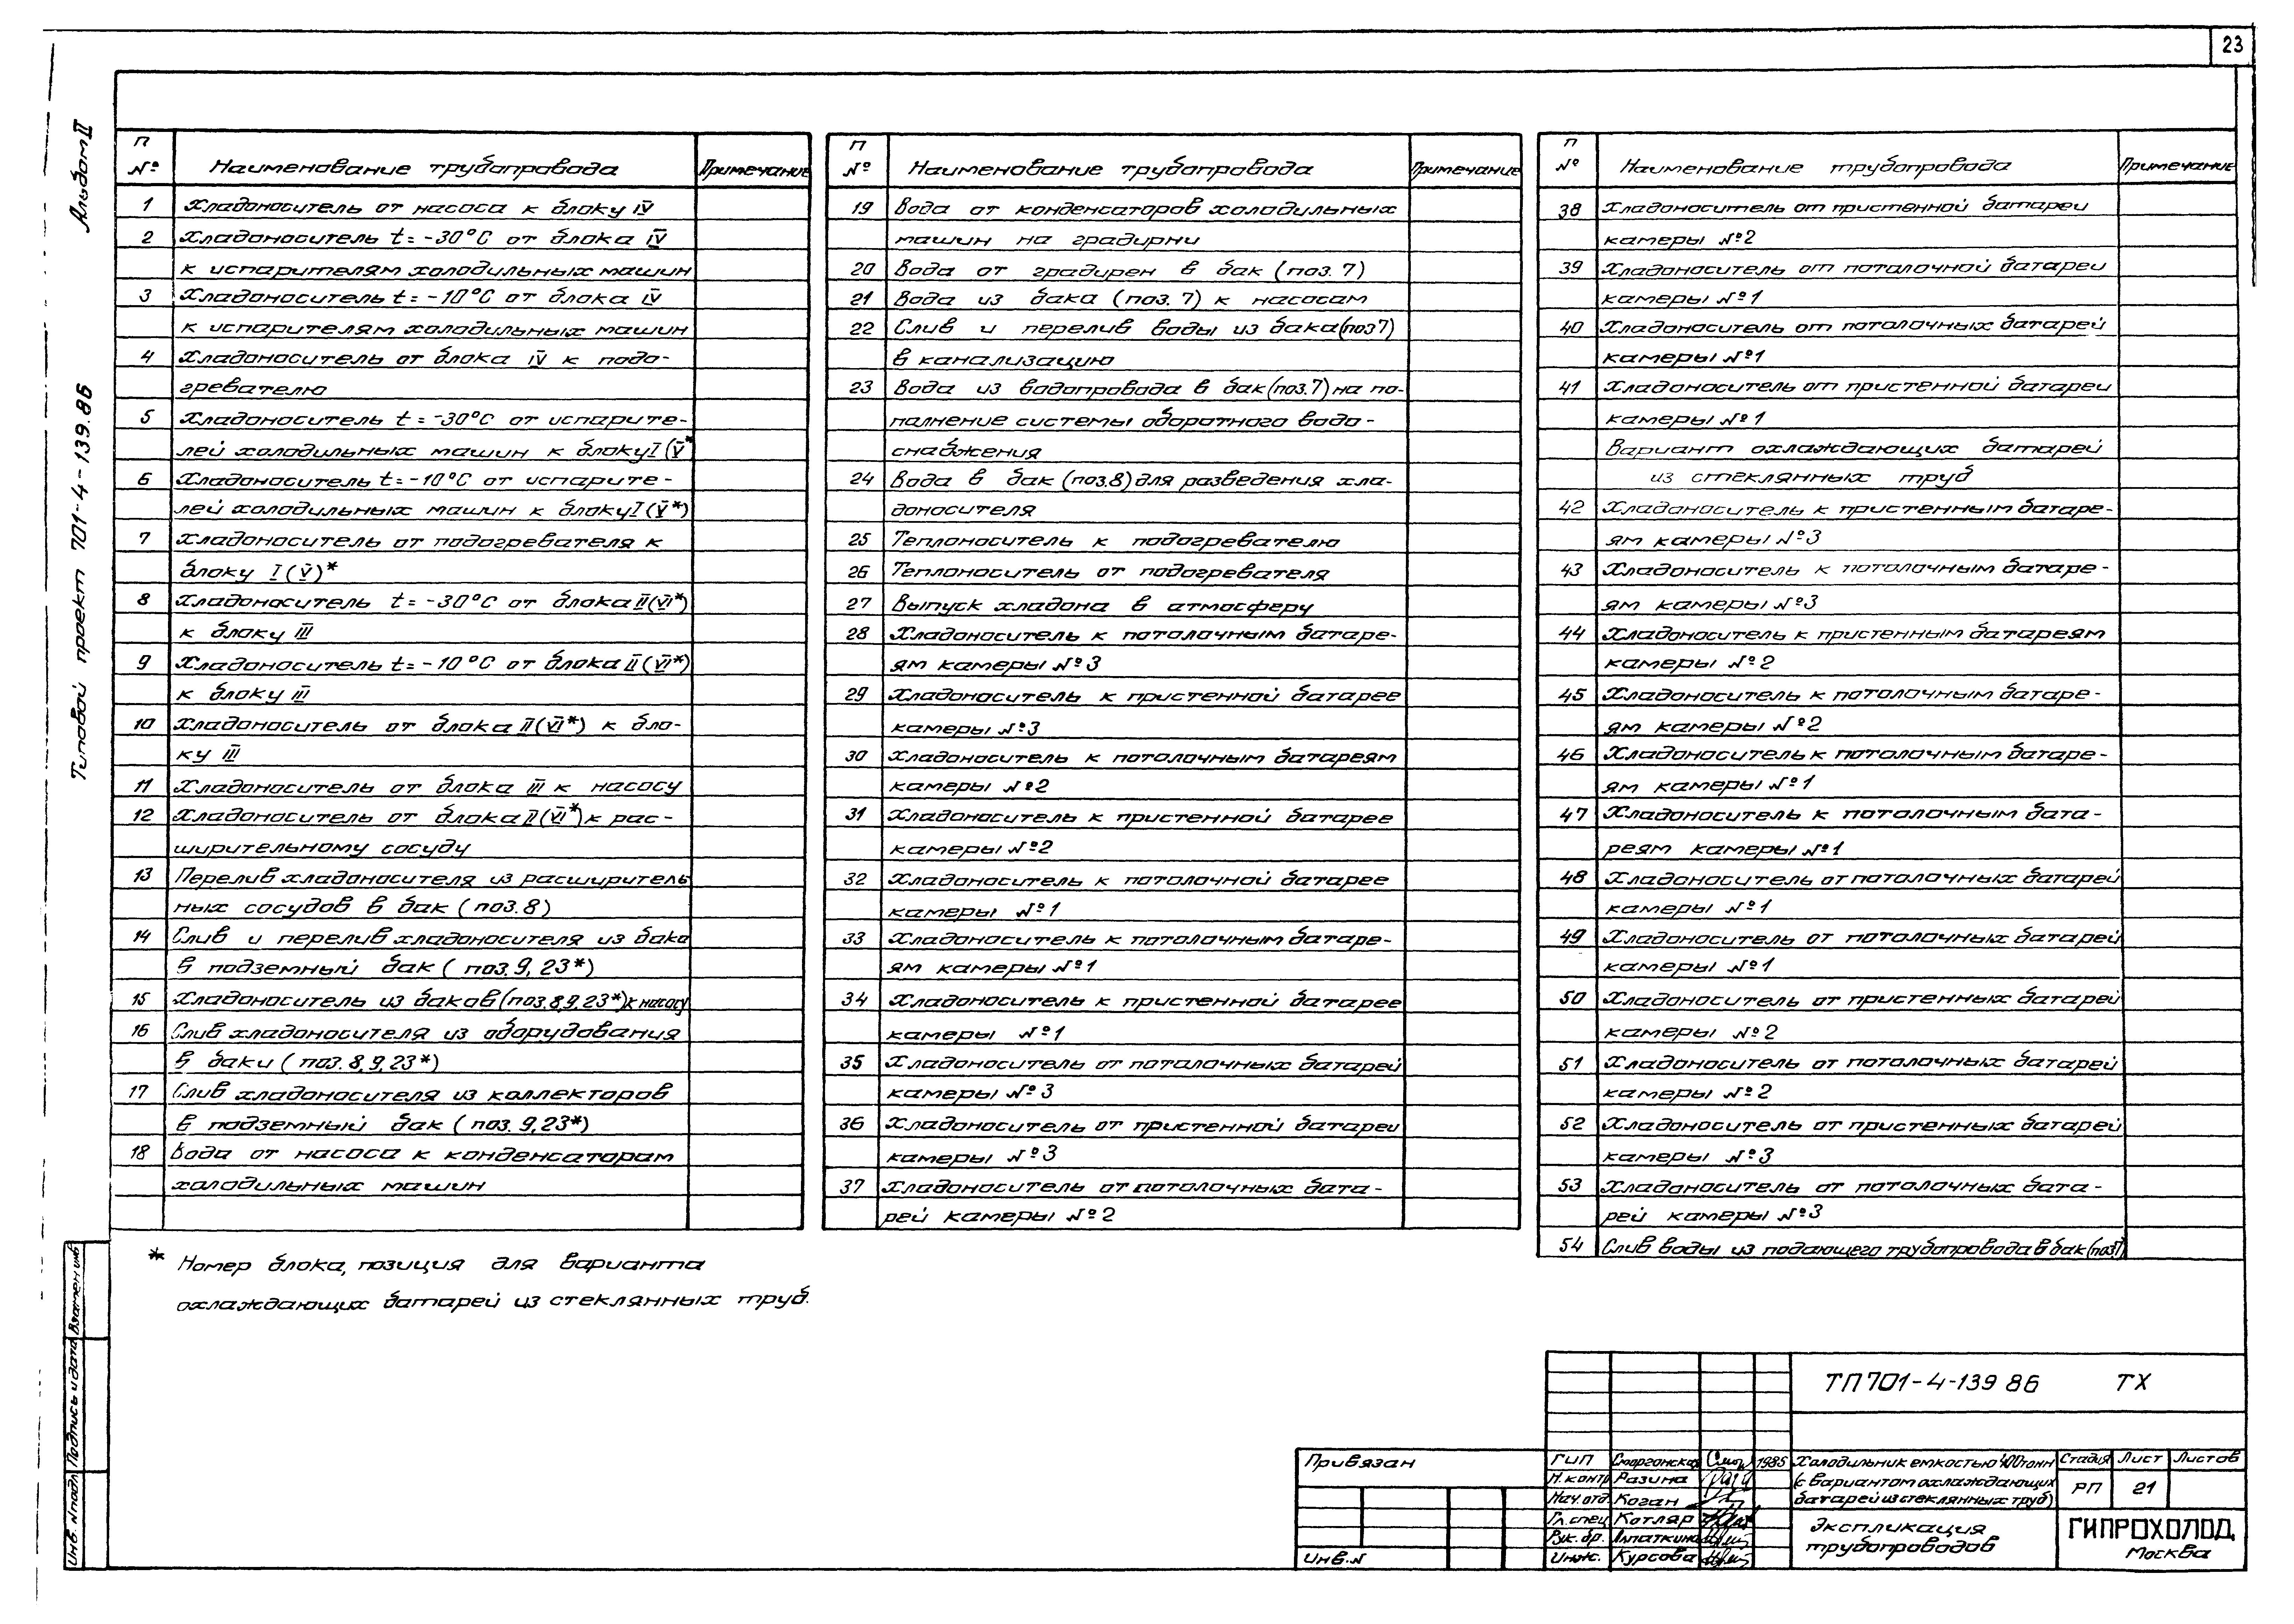 23
Альбом II
Типовой проект 701-4-139.86
п
№ Наименование трубопровода Примечание
1 Хладоноситель от насоса к блоку IV
2 Хладоноситель t= -30°С от блока IV
к испарителям холодильных машин
3 Хладоноситель t= -10°С от блока IV
к испарителям холодильных машин
4 Хладоноситель от блока IV к подо-
гревателю
5 Хладоноситель t= -30°С от испарите-
лей холодильных машин к блоку I (V*
6 Хладоноситель t= -10°С от испарите-
лей холодильных машин к блоку I (V*)
7 Хладоноситель от подогревателя к
блоку I (V)*
8 Хладоноситель t= -30°С от блока II (VI*)
к блоку III
9 Хладоноситель t= -10°С от блока II (VI*)
к блоку III
10 Хладоноситель от блока II (VI*) к бло-
ку III
11 Хладоноситель от блока III к насосу
12 Хладоноситель от блока II (VI*) к рас-
ширительному сосуду
13 Перелив хладоносителя из расширитель
ных сосудов в бак (поз.8)
14 Слив и перелив хладоносителя из бака
в подземный бак (поз.9, 23*)
15 Хладоноситель из баков (поз.8,9,23*) к насосу
16 Слив хладоносителя из оборудования
в баки (поз.8,9,23*)
17 Слив хладоносителя из коллекторов
в подземный бак (поз.9,23*)
18 Вода от насоса к конденсаторам
холодильных машин
п
№ Наименование трубопровода Примечание
19 Вода от конденсаторов холодильных
машин на градирни
20 Вода от градирен в бак (поз. 7)
21 Вода из бака (поз. 7) к насосам
22 Слив и перелив воды из бака (поз7)
в канализацию
23 Вода из водопровода в бак (поз.7) на по-
полнение системы оборотного водо-
снабжения
24 Вода в бак (поз.8) для разведения хла-
доносителя
25 Теплоноситель к подогревателю
26 Теплоноситель от подогревателя
27 Выпуск хладона в атмосферу
28 Хладоноситель к потолочным батаре-
ям камеры №3
29 Хладоноситель к пристенной батарее
камеры №3
30 Хладоноситель к потолочным батареям
камеры №2
31 Хладоноситель к пристенной батарее
камеры №2
32 Хладоноситель к потолочной батарее
камеры №1
33 Хладоноситель к потолочным батаре-
ям камеры №1
34 Хладоноситель к пристенной батарее
камеры №1
35 Хладоноситель от потолочных батарей
камеры №3
36 Хладоноситель от пристенной батареи
камеры №3
37 Хладоноситель от потолочных бата-
рей камеры №2
п
№ Наименование трубопровода Примечание
38 Хладоноситель от пристенной батареи
камеры №2
39 Хладоноситель от потолочной батареи
камеры №1
40 Хладоноситель от потолочных батарей
камеры №1
41 Хладоноситель от пристенной батареи
камеры №1
Вариант охлаждающих батарей
из стеклянных труб
42 Хладоноситель к пристенным батаре-
ям камеры №3
43 Хладоноситель к потолочным батаре-
ям камеры №3
44 Хладоноситель к пристенным батареям
камеры №2
45 Хладоноситель к потолочным батаре-
ям камеры №2
46 Хладоноситель к потолочным батаре-
ям камеры №1
47 Хладоноситель к потолочным бата-
реям камеры №1
48 Хладоноситель от потолочных батарей
камеры №1
49 Хладоноситель от потолочных батарей
камеры №1
50 Хладоноситель от пристенных батарей
камеры №2
51 Хладоноситель от потолочных батарей
камеры №2
52 Хладоноситель от пристенных батарей
камеры №3
53 Хладоноситель от потолочных бата-
рей камеры №3
54 Слив воды из подающего трубопровода в бак (поз7)
* Номер блока, позиция для варианта
охлаждающих батарей из стеклянных труб.
Инв. № подл Подпись и дата Взамен инв
Привязан
Инв.№
ТП 701-4-139 86 ТХ
ГИП Сморгонская 1985
Н. контр Разина
Нач.отд. Коган
Гл.спец Котляр
Рук. бр. Алпаткина
Инж. Курсова
Холодильник емкостью 400тонн
(с вариантом охлаждающих
батарей из стеклянных труб)
Стадия Лист Листов
РП 21
Экспликация
трубопроводов
ГИПРОХОЛОД
Москва